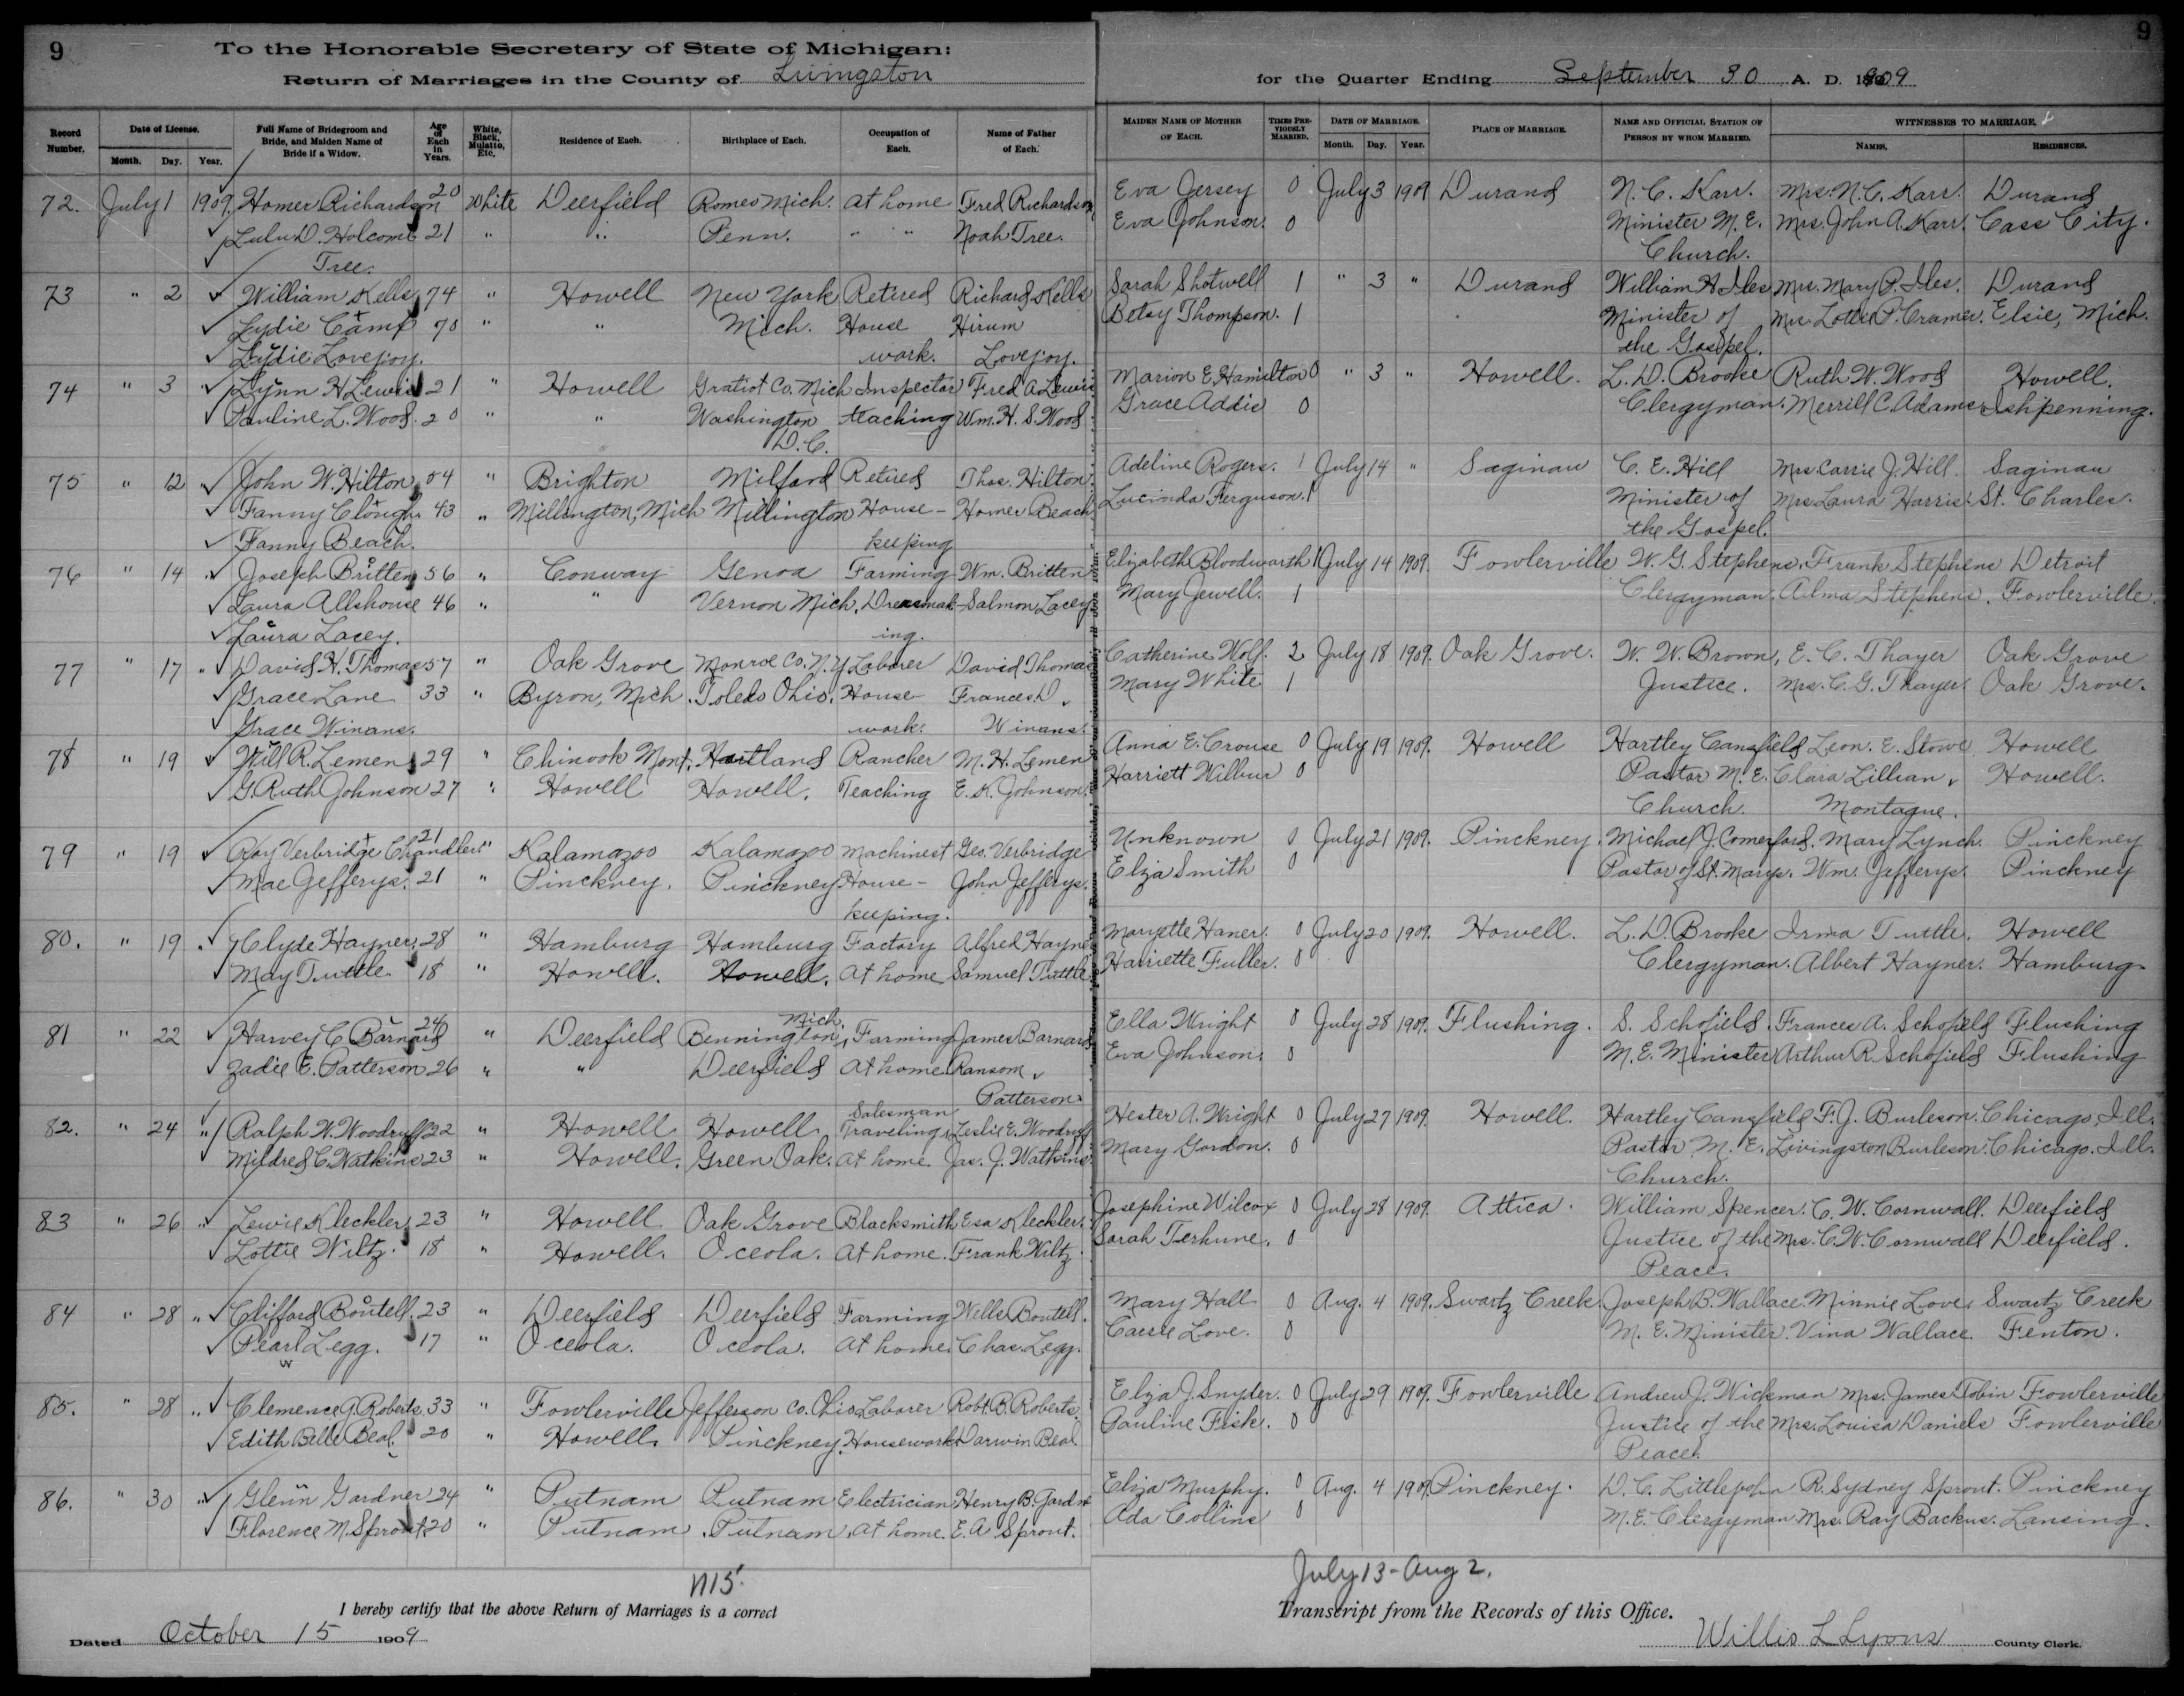 9
To the Honorable Secretary of State of Michigan:
Return of Marriages in the County of Livingston
for the Quarter Ending September 30 A. D. 1909
9
Record Number. | Date of License. Month. Day. Year. | Full Name of Bridegroom and Bride, and Maiden Name of Bride if a Widow. | Age of Each in Years. | White, Black, Mulatto, Etc. | Residence of Each. | Birthplace of Each. | Occupation of Each. | Name of Father of Each. | Maiden Name of Mother of Each. | Times Previously Married. | Date of Marriage. Month. Day. Year. | Place of Marriage. | Name and Official Station of Person by Whom Married. | Witnesses to Marriage. Names. Residences.
72. July 1 1909. Homer Richardson 20 White Deerfield Romeo Mich. At home Fred Richardson Eva Jersey 0 July 3 1909 Durand N. C. Karr. Mrs. N. C. Karr. Durand
Lulu D. Holcomb 21 " " Penn. " " Noah Tree. Eva Johnson. 0 Minister M. E. Mrs. John A. Karr. Cass City.
Tree. Church.
73 " 2 William Kells 74 " Howell New York Retired Richard Kells Sarah Shotwell 1 " 3 " Durand William H Iles Mrs. Mary P. Iles. Durand
Lydie Camp 70 " " Mich. House Hirum Betsy Thompson. 1 Minister of Mrs Lottie P. Cramer. Elsie, Mich.
Lydie Lovejoy. work. Lovejoy. the Gospel.
74 " 3 Lynn H Lewis 21 " Howell Gratiot Co. Mich Inspector Fred A Lewis Marion E. Hamilton 0 " 3 " Howell. L. D. Brooke Ruth W. Wood Howell.
Pauline L. Wood. 20 " " Washington teaching Wm. H. S. Wood Grace Addis 0 Clergyman. Merrill C. Adams Ishpenning.
D. C.
75 " 12 John W. Hilton 54 " Brighton Milford Retired Thos. Hilton. Adeline Rogers. 1 July 14 " Saginaw C. E. Hill Mrs. Carrie J. Hill. Saginaw
Fanny Clough 43 " Millington, Mich Millington House- Homer Beach Lucinda Ferguson. 1 Minister of Mrs Laura Harris. St. Charles.
Fanny Beach. keeping the Gospel.
76 " 14 " Joseph Britten 56 " Conway Genoa Farming Wm. Britten Elizabeth Bloodworth 1 July 14 1909. Fowlerville W. G. Stephens, Frank Stephens Detroit
Laura Allshouse 46 " " Vernon Mich. Dressmak- Salmon Lacey Mary Jewell. 1 Clergyman. Alma Stephens. Fowlerville.
Laura Lacey. ing.
77 " 17 " David H. Thomas 57 " Oak Grove Monroe Co. N. Y. Laborer David Thomas Catherine Wolf. 2 July 18 1909. Oak Grove. W. W. Brown, E. C. Thayer Oak Grove
Grace Lane 33 " Byron, Mich. Toledo Ohio. House- Frances D. Mary White 1 Justice. Mrs. C. G. Thayer. Oak Grove.
Grace Winans. work. Winans.
78 " 19 Will R. Lemen 29 " Chinook Mont. Hartland Rancher M. H. Lemen Anna E. Crouse 0 July 19 1909. Howell Hartley Cansfield Leon. E. Stowe Howell
G. Ruth Johnson 27 " Howell Howell. Teaching E. K. Johnson. Harriett Wilbur 0 Pastor M. E. Clara Lillian Howell.
Church. Montague.
79 " 19 Ray Verbridge Chandler 21 " Kalamazoo Kalamazoo Machinest Geo. Verbridge Unknown 0 July 21 1909. Pinckney. Michael J. Comerford. Mary Lynch. Pinckney
Mae Jefferys. 21 " Pinckney. Pinckney House- John Jefferys. Eliza Smith 0 Pastor of St. Marys. Wm. Jefferys. Pinckney
keeping.
80. " 19 " Clyde Hayner. 28 " Hamburg Hamburg Factory Alfred Hayner Maryette Haner. 0 July 20 1909. Howell. L. D. Brooke Irma Tuttle. Howell
May Tuttle 18 " Howell. Howell. At home Samuel Tuttle Harriette Fuller. 0 Clergyman. Albert Hayner. Hamburg
Mich.
81 " 22 Harvey C Barnard 24 " Deerfield Bennington, Farming James Barnard Ella Wright 0 July 28 1909. Flushing. S. Schofield. Frances A. Schofield Flushing
Zadie E. Patterson 26 " " Deerfield At home Ransom Eva Johnson. 0 M. E. Minister Arthur R. Schofield Flushing
Patterson
Salesman
82. " 24 " Ralph W. Woodruff 22 " Howell Howell. Traveling Leslie E. Woodruff Hester A. Wright 0 July 27 1909. Howell. Hartley Cansfield F. J. Burleson. Chicago, Ill.
Mildred C. Watkins 23 " Howell. Green Oak. At home. Jas. J. Watkins. Mary Gordon. 0 Pastor M. E. Livingston Burleson. Chicago. Ill.
Church.
83 " 26 " Lewie Kleckler 23 " Howell Oak Grove Blacksmith Esa Kleckler. Josephine Wilcox 0 July 28 1909. Attica. William Spencer. C. W. Cornwall. Deerfield
Lottie Wiltz. 18 " Howell. Oceola. At home. Frank Wiltz. Sarah Terhune. 0 Justice of the Mrs. C. W. Cornwall Deerfield.
Peace.
84 " 28 " Clifford Boutell. 23 " Deerfield Deerfield Farming Wells Boutell. Mary Hall 0 Aug. 4 1909. Swartz Creek. Joseph B. Wallace. Minnie Love. Swartz Creek
Pearl Legg. 17 " Oceola. Oceola. At home. Chas. Legg. Carrie Love. 0 M. E. Minister. Vina Wallace. Fenton.
W
85. " 28 " Clemence J. Roberts. 33 " Fowlerville Jefferson Co. Ohio Laborer Robt. B. Roberts. Eliza J. Snyder. 0 July 29 1909. Fowlerville Andrew J. Wickman Mrs. James Tobin Fowlerville
Edith Belle Beal. 20 " Howell. Pinckney. Housework Darwin Beal Pauline Fisk. 0 Justice of the Mrs. Louisa Daniels Fowlerville
Peace.
86. " 30 " Glenn Gardner 24 " Putnam Putnam Electrician Henry B. Gardner Eliza Murphy. 0 Aug. 4 1909. Pinckney. D. C. Littlejohn R. Sydney Sprout. Pinckney
Florence M. Sprout 20 " Putnam. Putnam. At home. E. A. Sprout. Ada Collins 0 M. E. Clergyman. Mrs. Ray Backus. Lansing.
1115.
July 13 - Aug 2.
I hereby certify that the above Return of Marriages is a correct Transcript from the Records of this Office.
Dated October 15 1909
Willis L Lyons County Clerk.